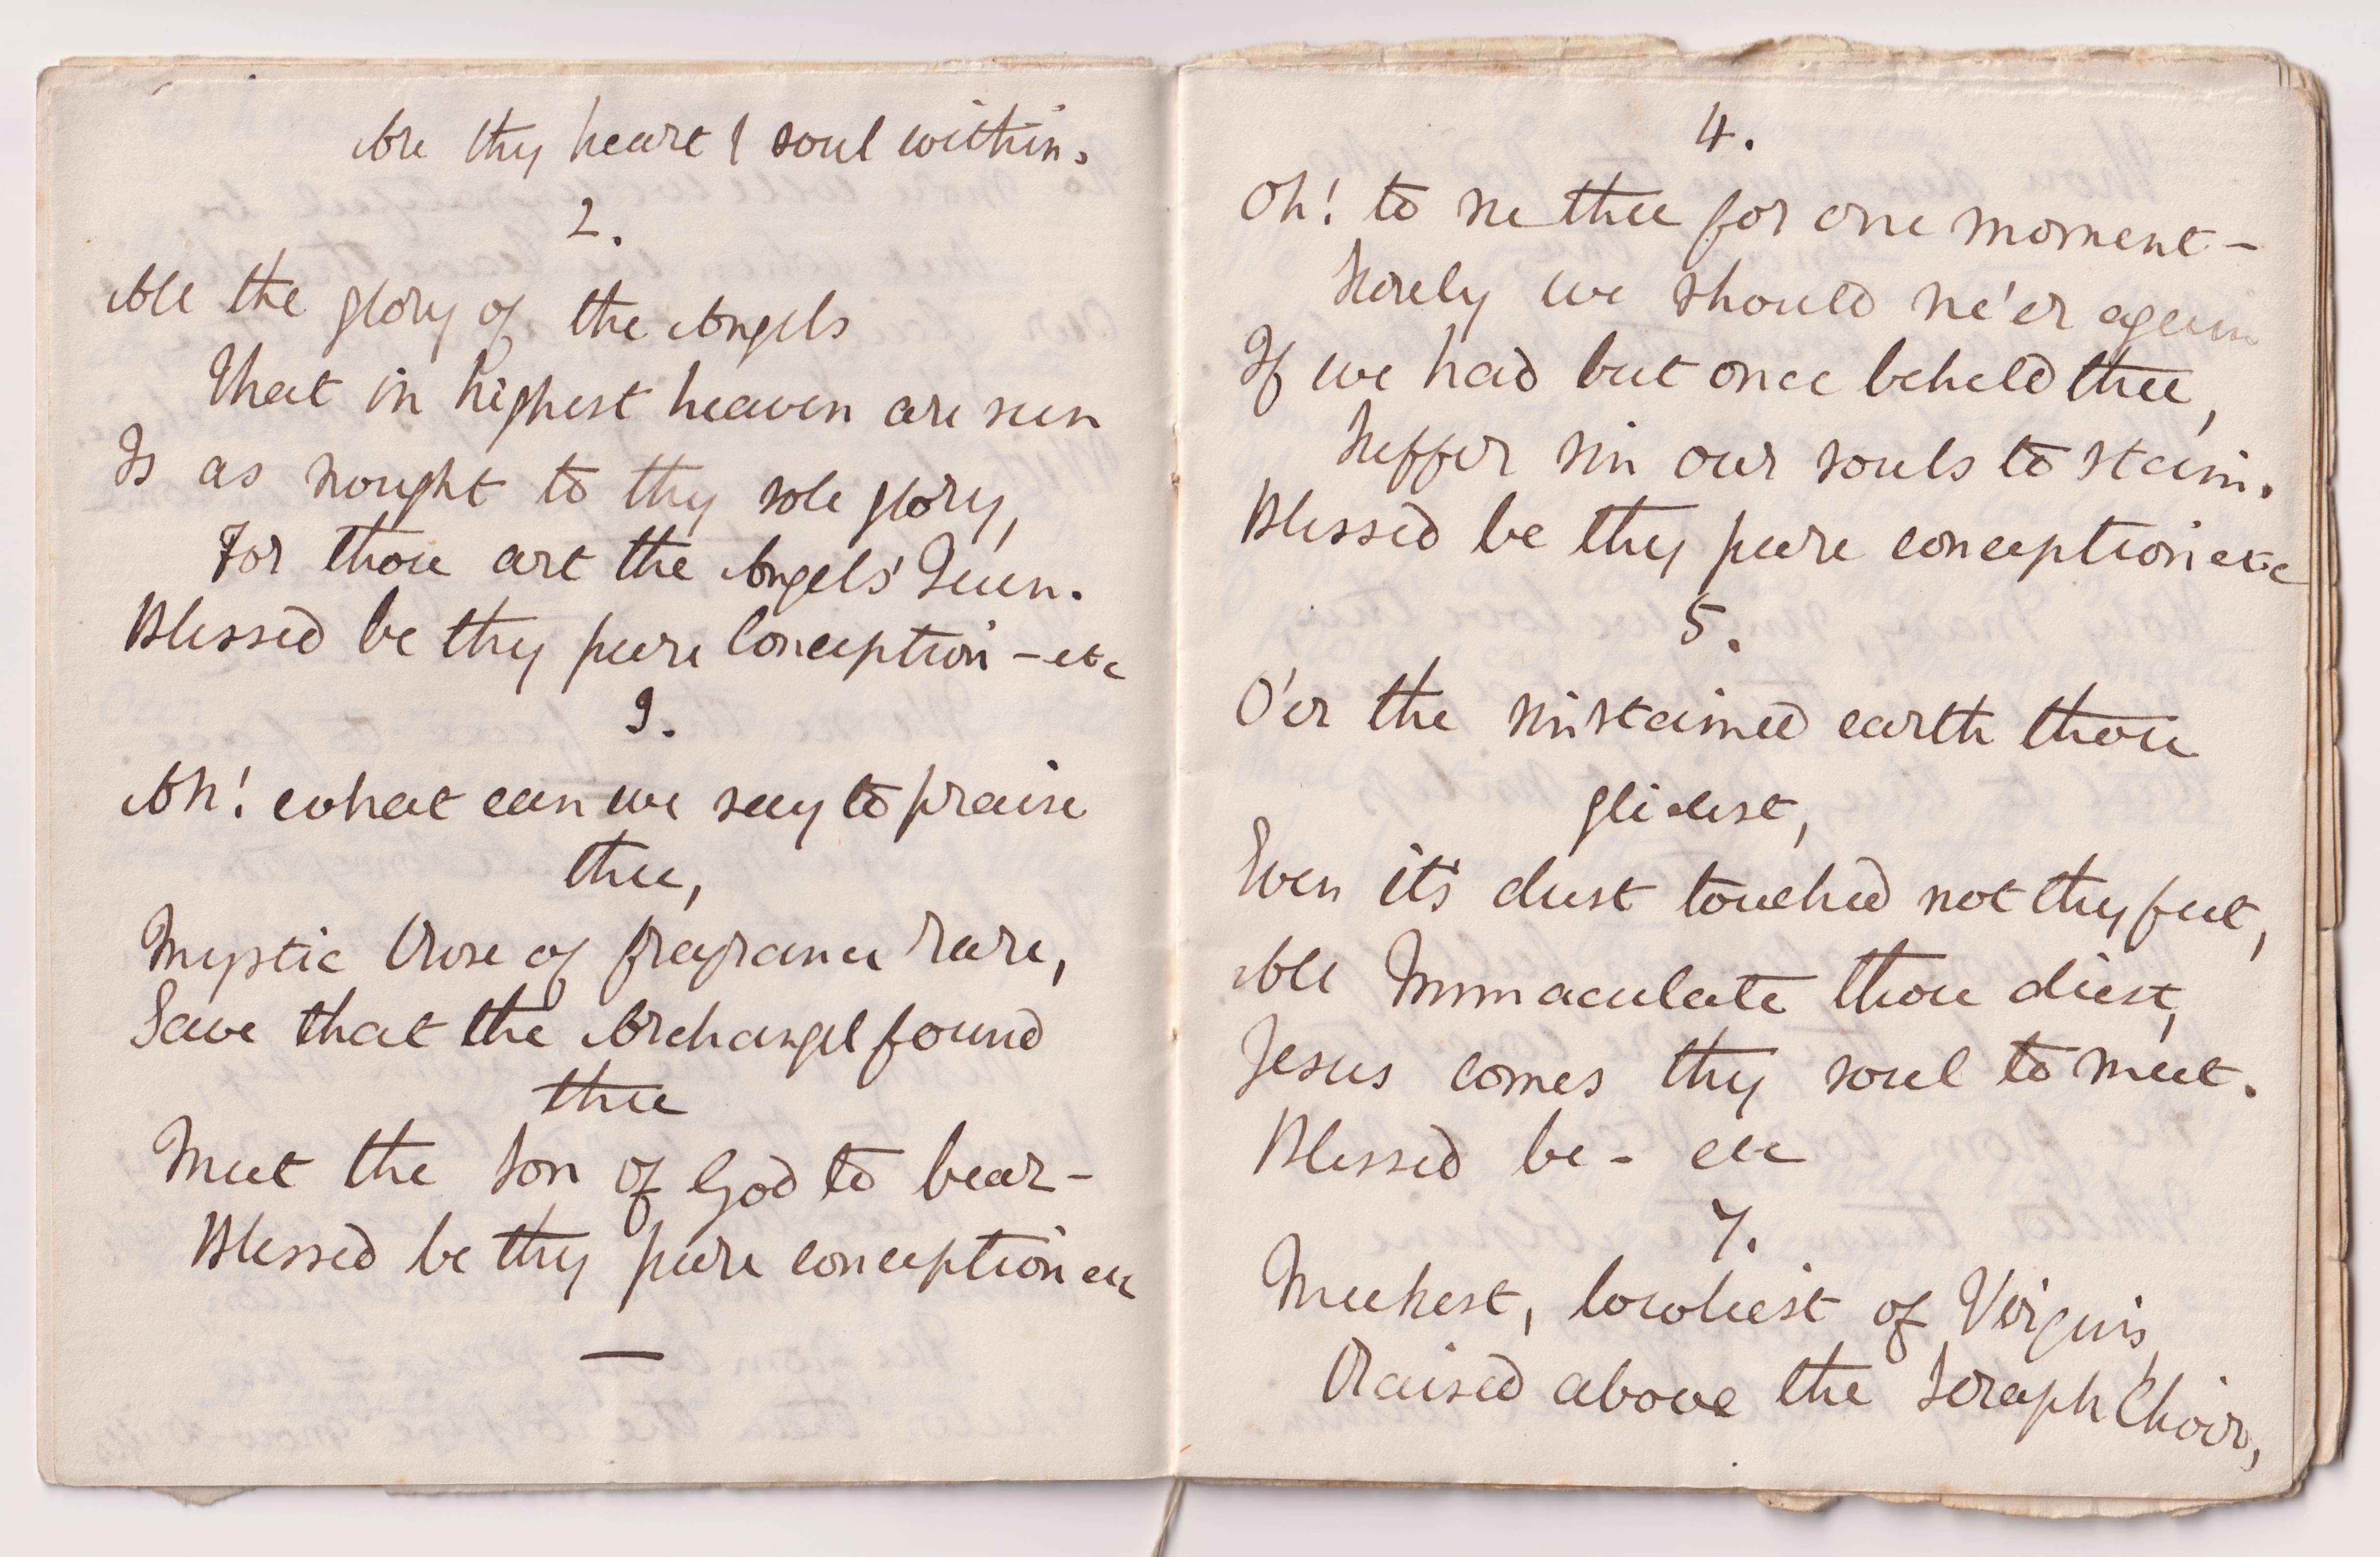 Are thy heart & soul within.
2.
All the glory of the Angels
That in highest heaven are seen
Is as nought to thy sole glory,
For thou art the Angels' Queen.
Blessed be thy pure Conception - etc
3.
Ah! what can we say to praise
thee,
Mystic Rose of fragrance rare,
Save that the Archangel found
thee
Meet the Son of God to bear -
Blessed be thy pure conception etc
4.
Oh! to see thee for one moment -
Surely we should ne'er again
If we had but once beheld thee,
Suffer sin our souls to stain.
Blessed be thy pure conception etc
5.
O'er the sinstained earth thou
glidest,
Even it's dust touched not thy feet,
All Immaculate thou diest,
Jesus comes thy soul to meet.
Blessed be - etc
7.
Meekest, lowliest of Virgins
Raised above the Seraph Choir,